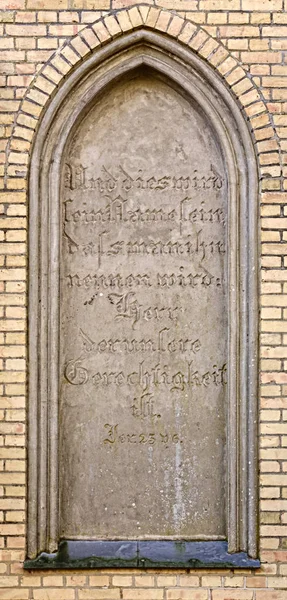 Und dies wird
sein Name sein,
daß man ihn
nennen wird:
Herr
der unsere
Gerechtigkeit
ist.
Jer 23 v 6.